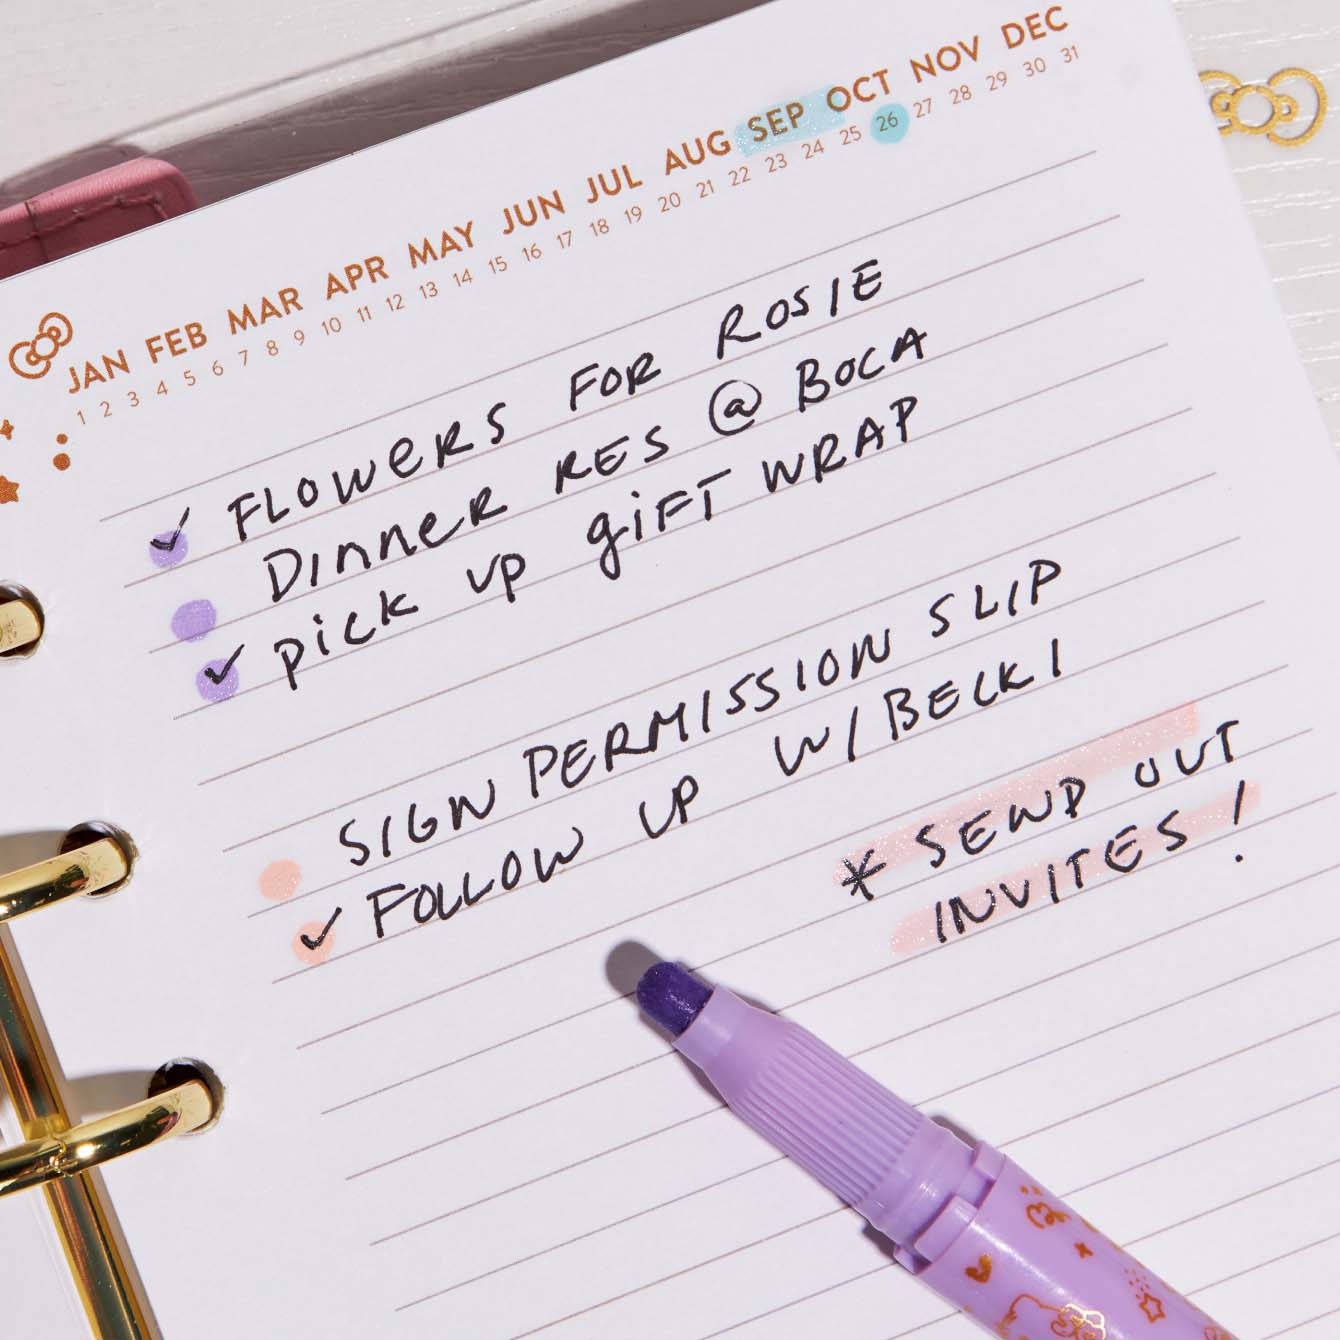 JAN FEB MAR APR MAY JUN JUL AUG SEP OCT NOV DEC
1 2 3 4 5 6 7 8 9 10 11 12 13 14 15 16 17 18 19 20 21 22 23 24 25 26 27 28 29 30 31
✓ FLOWERS FOR ROSIE
DINNER RES @ BOCA
✓ PICK UP GIFT WRAP
SIGN PERMISSION SLIP
✓ FOLLOW UP W/ BECKI
* SEND OUT
INVITES!